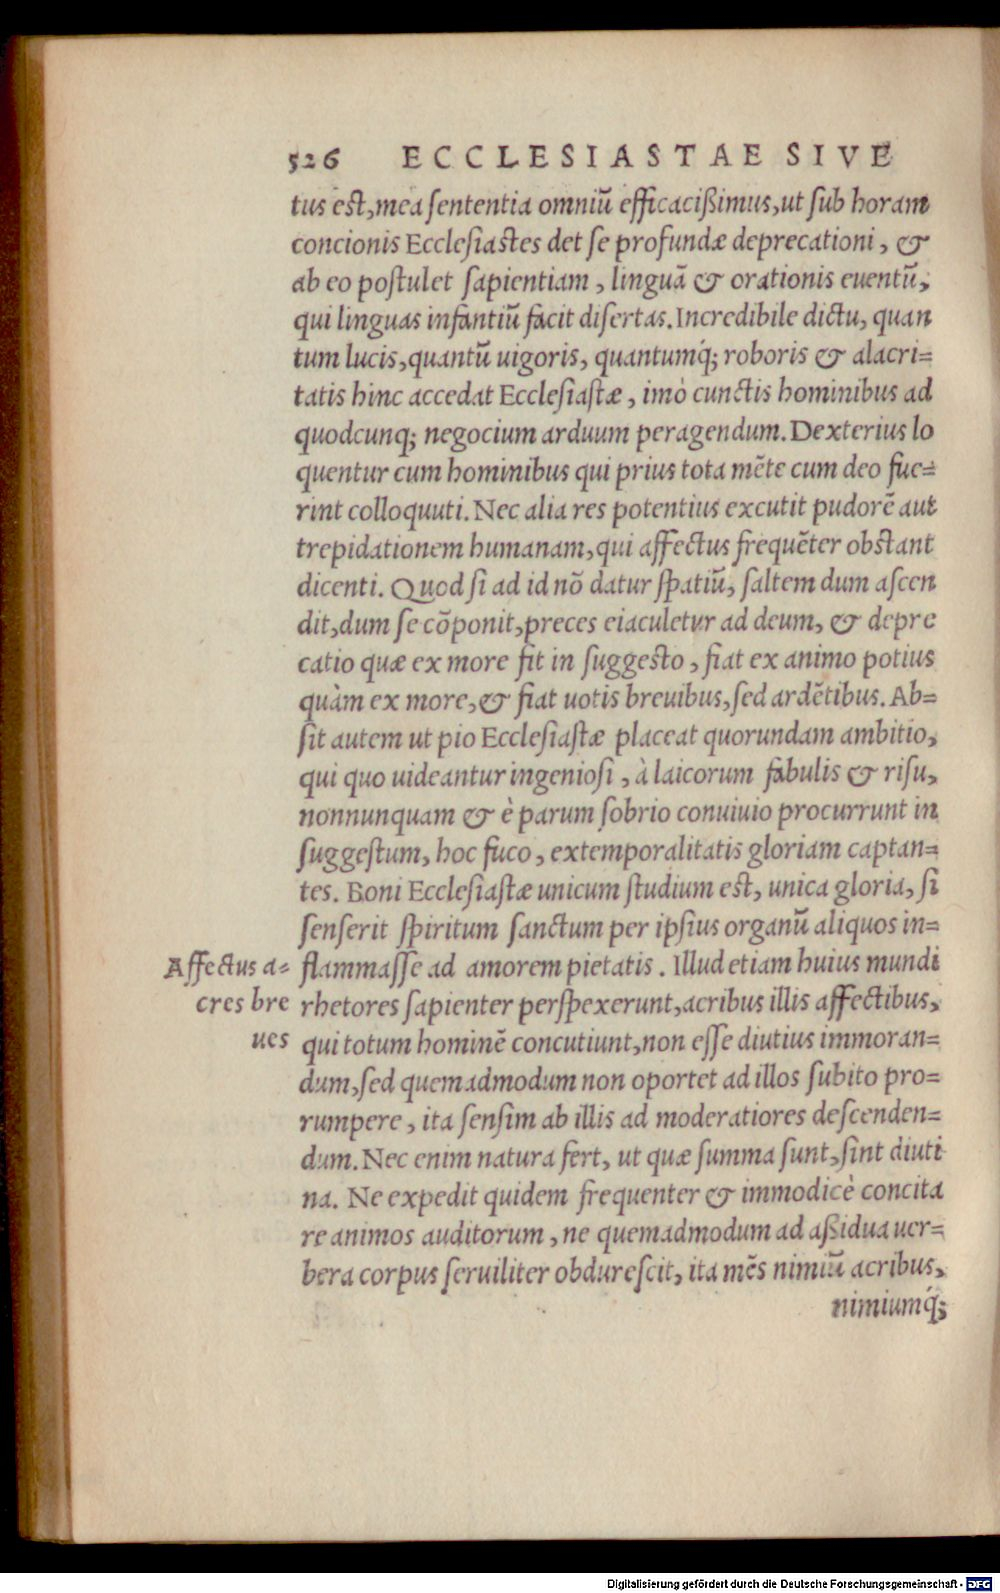 526 ECCLESIASTAE SIVE
tus est, mea sententia omniũ efficacißimus, ut sub horam
concionis Ecclesiastes det se profundæ deprecationi, &
ab eo postulet sapientiam, linguã & orationis euentũ,
qui linguas infantiũ facit disertas. Incredibile dictu, quan
tum lucis, quantũ uigoris, quantumq́; roboris & alacri=
tatis hinc accedat Ecclesiastæ, imò cunctis hominibus ad
quodcunq; negocium arduum peragendum. Dexterius lo
quentur cum hominibus qui prius tota mẽte cum deo fue=
rint colloquuti. Nec alia res potentius excutit pudorẽ aut
trepidationem humanam, qui affectus frequẽter obstant
dicenti. Quod si ad id nõ datur spatiũ, saltem dum ascen
dit, dum se cõponit, preces eiaculetur ad deum, & depre
catio quæ ex more fit in suggesto, fiat ex animo potius
quàm ex more, & fiat uotis breuibus, sed ardẽtibus. Ab=
sit autem ut pio Ecclesiastæ placeat quorundam ambitio,
qui quo uideantur ingeniosi, à laicorum fabulis & risu,
nonnunquam & è parum sobrio conuiuio procurrunt in
suggestum, hoc fuco, extemporalitatis gloriam captan=
tes. Boni Ecclesiastæ unicum studium est, unica gloria, si
senserit spiritum sanctum per ipsius organũ aliquos in=
Affectus a= flammasse ad amorem pietatis. Illud etiam huius mundi
cres bre rhetores sapienter perspexerunt, acribus illis affectibus,
ues qui totum hominẽ concutiunt, non esse diutius immoran=
dum, sed quemadmodum non oportet ad illos subito pro=
rumpere, ita sensim ab illis ad moderatiores descenden=
dum. Nec enim natura fert, ut quæ summa sunt, sint diuti
na. Ne expedit quidem frequenter & immodicè concita
re animos auditorum, ne quemadmodum ad aßidua uer=
bera corpus seruiliter obdurescit, ita mẽs nimiũ acribus,
nimiumq́;
Digitalisierung gefördert durch die Deutsche Forschungsgemeinschaft - DFG